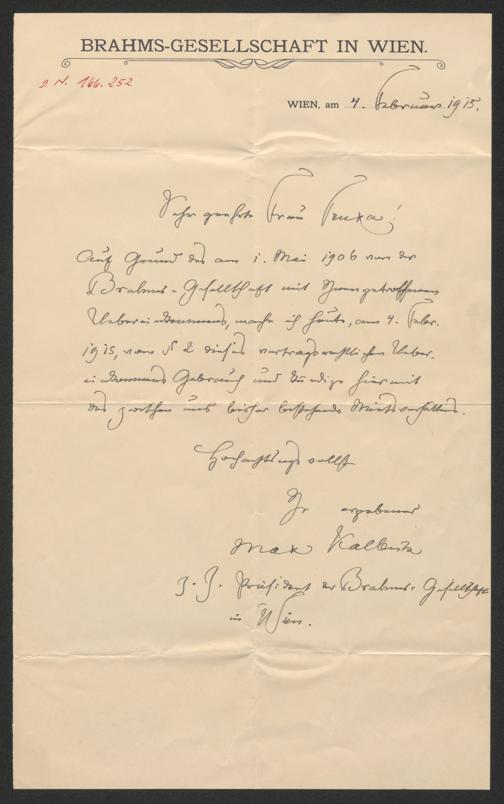 BRAHMS-GESELLSCHAFT IN WIEN.
I. N. 166.252
WIEN, am 4. Februar 1915.
Sehr geehrte Frau Truxa!
Auf Grund des am 1. Mai 1906 von der
Brahms-Gesellschaft mit Ihnen getroffenen
Uebereinkommens, mache ich heute, am 4. Febr.
1915, vom § 2 dieses vertragsrechtlichen Ueber-
einkommens Gebrauch und kündige hiermit
das zwischen uns bisher bestehende Mietsverhältnis.
Hochachtungsvollst
Ihr ergebener
Max Kalbeck
z. Z. Präsident der Brahms-Gesellschaft
in Wien.